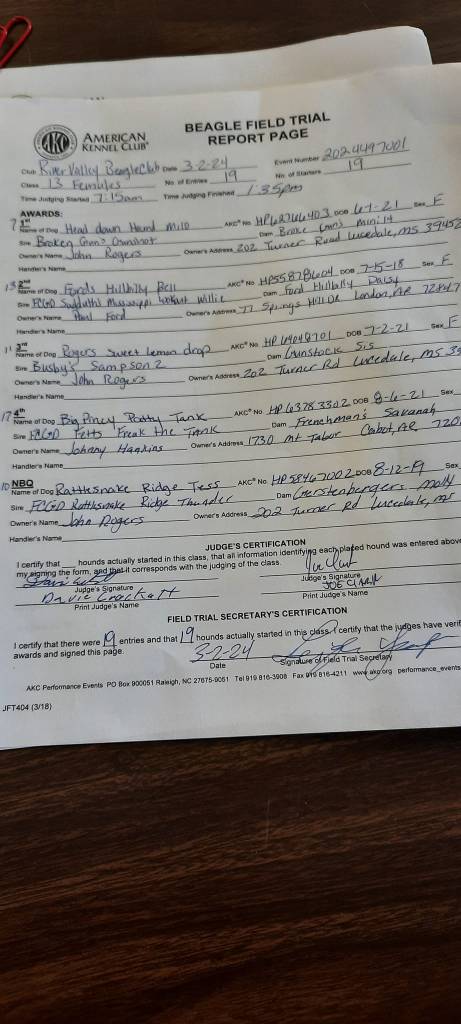 AMERICAN KENNEL CLUB®
BEAGLE FIELD TRIAL
REPORT PAGE
Club River Valley Beagle Club Date 3-2-24 Event Number 2024497001
Class 13 Females No. of Entries 19 No. of Starters 19
Time Judging Started 7:15am Time Judging Finished 1:35pm
AWARDS:
7 1st
Name of Dog Head down Hound Milo AKC® No. DOB 6-1-21 Sex F
Sire Broken Dam
Owner's Name John Rogers Owner's Address 202 Turner Road Lucedale, MS 39452
Handler's Name
13 2nd
Name of Dog Fords Hillbilly Bell AKC® No. HP55878604 DOB 7-15-18 Sex F
Sire FCGD Mississippi Lookout Willie Dam Ford Hillbilly Daisy
Owner's Name Paul Ford Owner's Address 77 Springs Hill DR London, AR 72847
Handler's Name
11 3rd
Name of Dog Rogers Sweet lemon drop AKC® No. DOB 7-2-21 Sex F
Sire Busby's Sampson 2 Dam Gunstock Sis
Owner's Name John Rogers Owner's Address 202 Turner Rd Lucedale, MS 39
Handler's Name
17 4th
Name of Dog Big Piney Patty Tank AKC® No. HP63783302 DOB 8-6-21 Sex
Sire FCGD Fetts Freak the Tank Dam Frenchman's Savanah
Owner's Name Johnny Hankins Owner's Address 1730 Mt Tabor Cabot, AR 720
Handler's Name
10 NBQ
Name of Dog Rattlesnake Ridge Tess AKC® No. HP58467002 DOB 8-12-19 Sex
Sire FCGD Rattlesnake Ridge Thunder Dam Gerstenbergers Molly
Owner's Name John Rogers Owner's Address 202 Turner Rd Lucedale, MS
Handler's Name
JUDGE'S CERTIFICATION
I certify that hounds actually started in this class, that all information identifying each placed hound was entered above
my signing the form, and that it corresponds with the judging of the class.
Judge's Signature Judge's Signature
Davie Crockett JOE CLARK
Print Judge's Name Print Judge's Name
FIELD TRIAL SECRETARY'S CERTIFICATION
I certify that there were 19 entries and that 19 hounds actually started in this class. I certify that the judges have verif
awards and signed this page.
3-2-24
Date Signature of Field Trial Secretary
AKC Performance Events PO Box 900051 Raleigh, NC 27675-9051 Tel 919 816-3908 Fax 919 816-4211 www.akc.org performance_events
JFT404 (3/18)